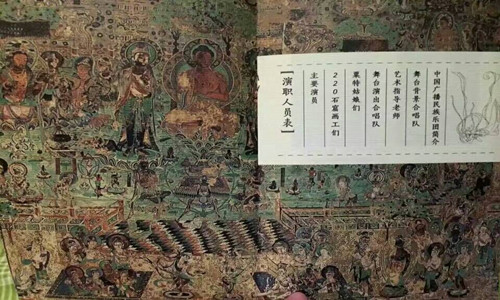 [演职人员表]
主要演员
220石窟画工们
粟特姑娘们
舞台演出合唱队
艺术指导老师
舞台背景合唱队
中国广播民族乐团简介